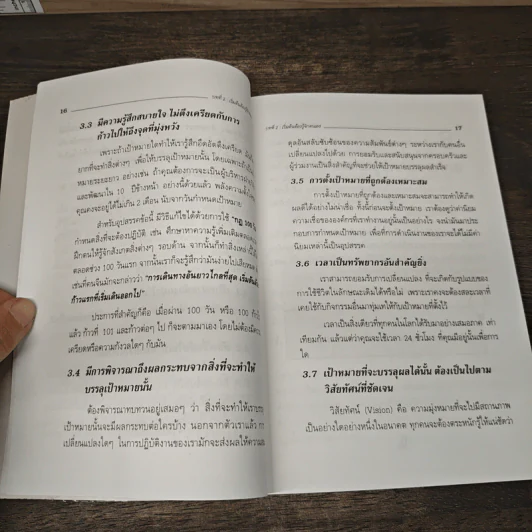 16
3.3 มีความรู้สึกสบายใจ ไม่ตึงเครียดกับการ
ก้าวไปให้ถึงจุดที่มุ่งหวัง
เพราะถ้าเป้าหมายใดทำให้เรารู้สึกอึดอัดตึงเครียด
ยากที่จะทำสิ่งต่างๆ เพื่อให้บรรลุเป้าหมายนั้น โดยเฉพาะ
หมายระยะยาว อย่างเช่น ถ้าคุณต้องการจะเป็นผู้บริหาร
และพัฒนาใน 10 ปีข้างหน้า อย่างนี้ด้วยแล้ว พลังความ
คุณคงจะอยู่ได้ไม่เกิน 2 เดือน นับจากวันกำหนดเป้าหมาย
สำหรับอุปสรรคข้อนี้ มีวิธีแก้ไขได้ด้วยการใช้ "กฎ 100
กำหนดสิ่งที่จะต้องปฏิบัติ เช่น ศึกษาหาความรู้เพิ่มเติม
ฝึกตนให้รู้จักสังเกตสิ่งต่างๆ รอบด้าน จากนั้นก็ทำสิ่งเหล่า
ตลอดช่วง 100 วันแรก จากนั้นเราก็จะรู้สึกว่ามันง่ายไป
เช่นที่คนจีนมักจะกล่าวว่า "การเดินทางอันยาวไกลที่สุด เริ่มต้น
ก้าวแรกที่เริ่มเดินออกไป"
ประการที่สำคัญก็คือ เมื่อผ่าน 100 วัน หรือ 100
แล้ว ก้าวที่ 101 และก้าวต่อๆ ไป ก็จะตามมาเอง โดยไม่ต้อง
เครียดหรือความกังวลใดๆ กับมัน
3.4 มีการพิจารณาถึงผลกระทบจากสิ่งที่จะทำให้
บรรลุเป้าหมายนั้น
ต้องพิจารณาทบทวนอยู่เสมอๆ ว่า สิ่งที่จะทำให้เรา
เป้าหมายนั้นจะมีผลกระทบต่อใครบ้าง นอกจากตัวเราแล้ว
เปลี่ยนแปลงใดๆ ในการปฏิบัติงานของเรามักจะส่งผลให้
17
ดุลอันสลับซับซ้อนของความสัมพันธ์ต่างๆ ระหว่างเรากับคนอื่น
เปลี่ยนแปลงไปด้วย การยอมรับและสนับสนุนจากครอบครัวและ
ผู้ร่วมงานเป็นสิ่งสำคัญที่จะช่วยให้เป้าหมายบรรลุผลสำเร็จ
3.5 การตั้งเป้าหมายที่ถูกต้องเหมาะสม
การตั้งเป้าหมายที่ถูกต้องและเหมาะสมจะสามารถทำให้เกิด
ผลดีได้อย่างไม่น่าเชื่อ ทั้งนี้ก่อนจะตั้งเป้าหมาย เราต้องดูว่าค่านิยม
ความเชื่อขององค์กรที่เราทำงานอยู่นั้นเป็นอย่างไร จงนำมันมาประ
กอบการกำหนดเป้าหมาย เพื่อที่การดำเนินงานของเราจะได้ไม่มีค่า
นิยมเหล่านี้เป็นอุปสรรค
3.6 เวลาเป็นทรัพยากรอันสำคัญยิ่ง
เราสามารถยอมรับการเปลี่ยนแปลง ที่จะเกิดกับรูปแบบของ
การใช้ชีวิตในลักษณะเดิมได้หรือไม่ เพราะเราคงจะต้องสละเวลาที่
เคยใช้กับกิจกรรมอื่นมาทุ่มเทให้กับเป้าหมายที่ตั้งไว้
เวลาเป็นสิ่งเดียวที่ทุกคนในโลกได้รับมาอย่างเสมอภาค เท่า
เทียมกัน แล้วแต่ว่าคุณจะใช้เวลา 24 ชั่วโมง ที่คุณมีอยู่นั้นเพื่อการ
ใด
3.7 เป้าหมายที่จะบรรลุผลได้นั้น ต้องเป็นไปตาม
วิสัยทัศน์ที่ชัดเจน
วิสัยทัศน์ (Vision) คือ ความมุ่งหมายที่จะไปมีสถานภาพ
เป็นอย่างใดอย่างหนึ่งในอนาคต ทุกคนจะต้องตระหนักรู้ให้แน่ชัดว่า